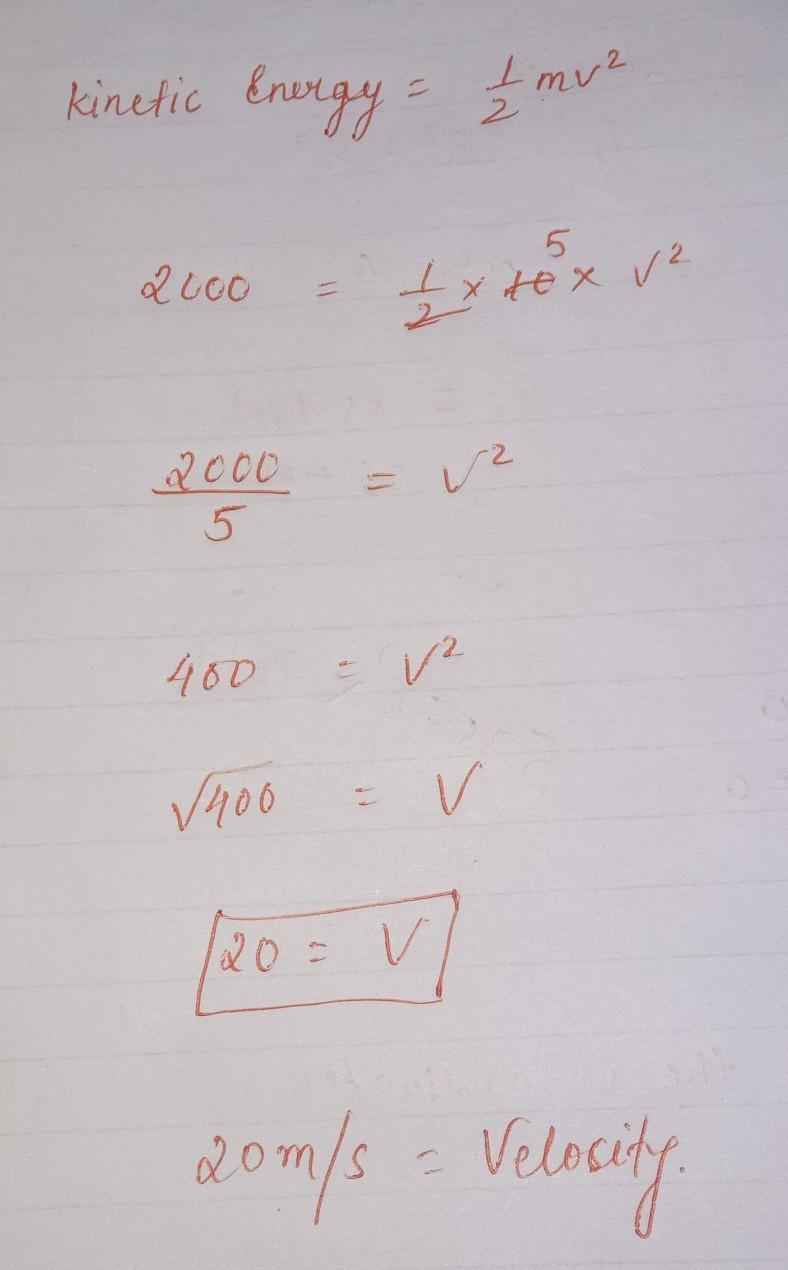 Kinetic Energy = 1/2 mv²
2000 = 1/2 × 10 5 × V²
2000/5 = V²
400 = V²
√400 = V
20 = V
20m/s = Velocity.